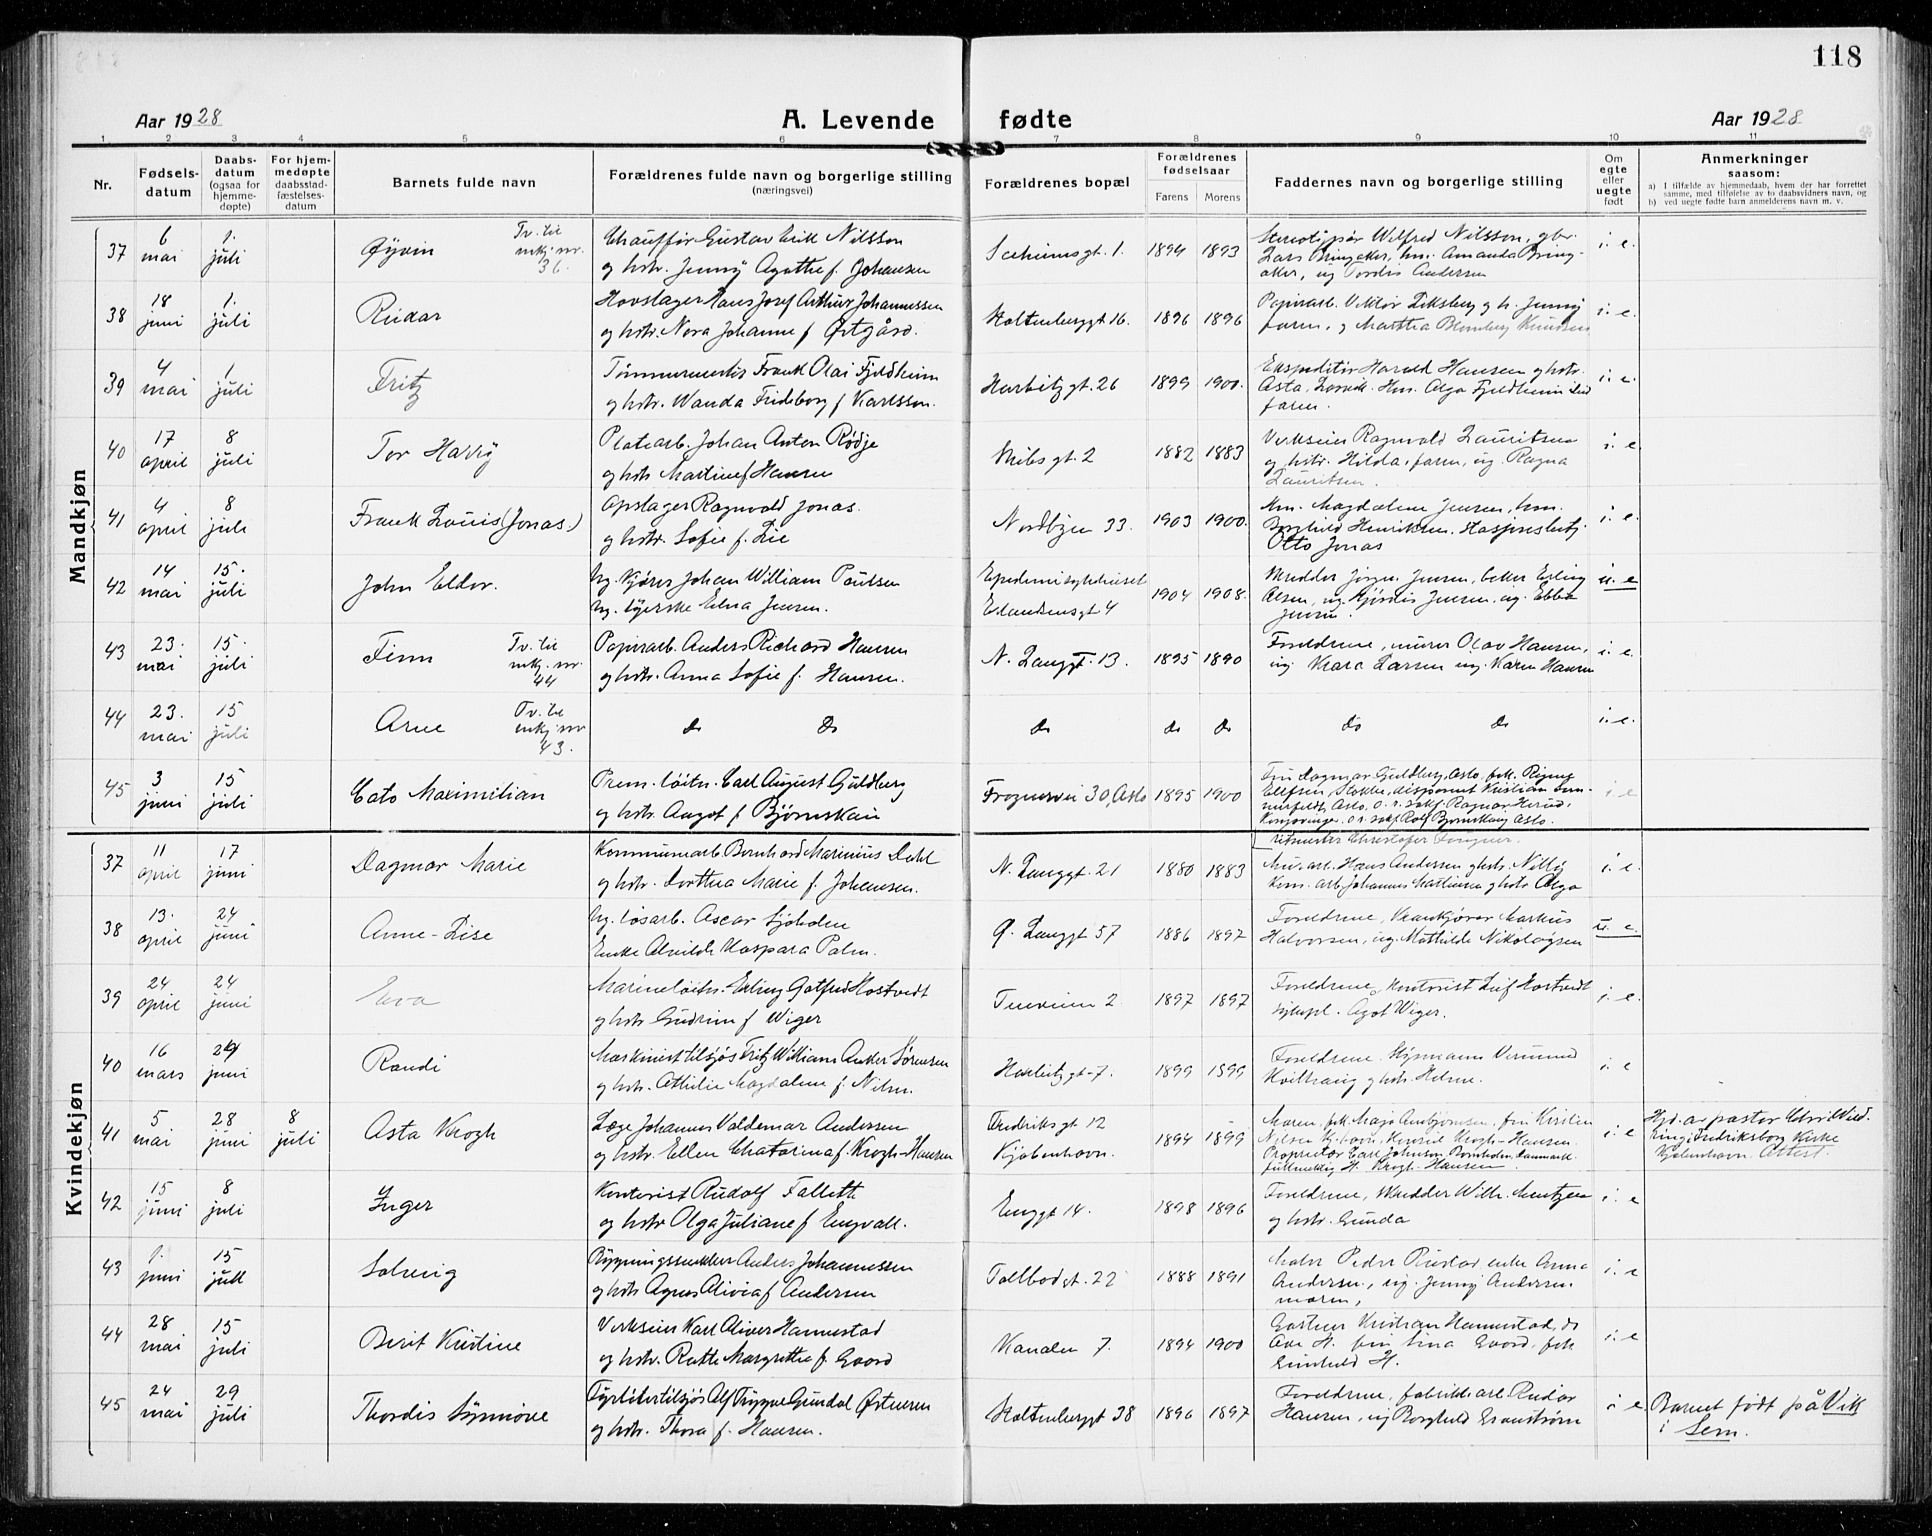 118
Aar 1928
A. Levende fødte
Aar 1928
1 2 3 4 5 6 7 8 9 10 11
Nr.
Fødsels-
datum
Daabs-
datum
(ogsaa for
hjemme-
døpte)
For hjem-
medøpte
daabsstad-
fæstelses-
datum
Barnets fulde navn
Forældrenes fulde navn og borgerlige stilling
(næringsvei)
Forældrenes bopæl
Forældrenes
fødselsaar
Farens Morens
Faddernes navn og borgerlige stilling
Om
egte
eller
uegte
født
Anmerkninger
saasom:
a) I tilfælde av hjemmedaab, hvem der har forrettet
samme, med tilføielse av to daabsvidners navn, og
b) ved uegte fødte barn anmelderens navn m. v.
Mandkjøn
37 6 mai 1. juli Øyvin Tv. til mkj. nr. 36.
Chauffør Gustav Erik Nilsson
og hstr. Jenny Agathe f. Johansen
gt. 1. 1894 1893
Stereotypør Wilfred Nilsson, gbr.
Lars Bringaker, hm. Amanda Bring-
aker, ug Tordis Andersen
i. e.
38 18 juni 1. juli Reidar
Hovslager Hans Josef Arthur Johannessen
og hstr. Nora Johanne f Østgård.
Stoltenberggt 16. 1896 1896
Papirarb. Viktor Eksberg g h. Jenny
faren, g Martha Blomberg Knudsen
i. e.
39 4 mai 1. juli Fritz
Tømmermester Frank Olai Fjeldheim
og hstr. Wanda Frideborg f Karlsson.
Harbitzgt 26 1899 1900.
Ekspeditør Harald Hansen g hstr.
Asta, Larvik. Hm. Olga Fjeldheim
faren.
i. e.
40 17 april 8 juli Tor Harry
Platearb. Johan Anton Rødje
og hstr Martine f Hansen
Nilsgt. 2 1882 1883
Verkseier Ragnvald Lauritsen
og hstr. Hilda, faren, ug. Ragna
Lauritsen.
i. e.
41 4 april 8 juli Frank Louis (Jonas.)
Opslager Ragnvald Jonas.
og hstr. Sofie f. Lie
Nordbyen 33. 1903 1900.
Hm. Magdalene Jensen, hm.
Borghild Henriksen.
Otto Jonas
i. e.
42 14 mai 15. juli John Eldor.
Ug. kjører Johan William Paulsen
Ug. syerske Edna Jensen.
Epidemisykehuset
gt 4 1904 1908.
Skredder Jørgen Jensen, beker Erling
Olsen, ug Hjørdis Jensen, ug. Ebba
Jensen
u. e
43 23. mai 15. juli Finn Tv. til mkj. nr. 44
Papirarb. Anders Richard Hansen
og hstr. Anna Sofie f. Hansen.
N. Langgt. 13. 1895 1890
Foreldrene, murer Olav Hansen,
ug. Klara Larsen ug. Karen Hansen
i. e.
44 23. mai 15 juli Arne Tv. til mkj. nr 43.
do do do do do do do i. e.
45 3 juni 15 juli Cato Maximilian
Prem. løitn. Carl August Guldberg
og hstr. Aagot f Bjørnskau
Frognervei 30, Oslo 1895 1900
Fru Dagmar Guldberg, Oslo, frk.
Ellefsen, disponent Kristian
Oslo, o. r. sakf. Ragnar Herud,
Kongsvinger. o. r. sakf Rolf Bjørnskau, Oslo.
ritmester Christofer
i e
Kvindekjøn
37 11 april 17 juni Dagmar Marie
Kommunearb Bernhard Marinius Dehl
og hstr. Dorthea Marie f. Johansen.
N. Langgt. 21 1880 1883
Mu. arb. Hans Andersen g hstr. Nilly
Kom. arb Johannes Martinsen g hstr Olga
i. e.
38 13. april 24 juni Anne-Lise
Ug. løsarb. Oscar Sjøholm
Enke Alvilde Kaspara Palm.
Ø. Langgt 57 1886 1897
Foreldrene, Krankjører Markus
Halvorsen, ug. Mathilde Nikolaysen
u. e
39 24 april 24 juni Eva
Marineløitn. Erling Gotfred Hostvedt
og hstr. Gudrun f Wiger
Tueveien 2. 1897 1897
Foreldrene, Kontorist Leif Hostvedt
Sykepl. Agot Wiger.
i. e.
40 16 mars 24 juni Randi
Maskinist tilsjøs Fritz William Anker Sørensen
og hstr. Othilie Magdalene f. Nilsen.
Harbitzgt-7. 1899 1899
Foreldrene. Styrmann Vermund
Kvilhaug g hstr. Helene.
i. e
41 5 mai 28 juni 8 juli Asta Krogh
Læge Johannes Valdemar Andersen
og hstr. Ellen Chatarina f. Krogh-Hansen
Fredriksgt 12
Kjøbenhavn. 1894 1899
Moren, frk. Maja Ambjørnsen, fru Kirsten
Nilsen Kj.havn, Henrik Krogh-Hansen.
Proprietær Carl Johnsen Bornholm, Danmark.
fullmektig H. Krogh-Hansen
i. e
Hjd. av pastor
i Fredriksborg Kirke
Kjøbenhavn. Attest.
42 15 juni 8 juli Inger
Kontorist Rudolf Falleth
og hstr Olga Juliane f Engvall.
Enggt 14. 1898 1896
Foreldrene, Skredder Wilh. Mentzen
og hstr. Gunda
i. e
43 1. juni 15 juli Solveig
Bygningssnekker Anders Johannessen
og hstr Agnes Olivia f Andersen
Tollbodgt. 22 1888 1891
Maler Peder Rustad enke Anna
Andersen, ug. Jenny Andersen
moren,
i. e
44 28 mai 15 juli Berit Kristine
Verkseier Karl Oliver Hannestad
og hstr. Ruth Margrethe f. Gaard
Kanalen 7. 1894 1900
Gartner Kristian Hannestad, do
Ove H. fru Lina Gaard, frk
Gunhild H.
i. e
45 24 mai 29 juli Thordis Synnøve
Fyrbøter tilsjøs Alf Trygve Gundal Østensen
og hstr. Thora f. Hansen.
Stoltenberggt 38 1896 1897
Foreldrene, fabrikkarb Reidar
Hansen, ug Borghild Granstrøm
i e.
Barnet født på Vik
i Sem.